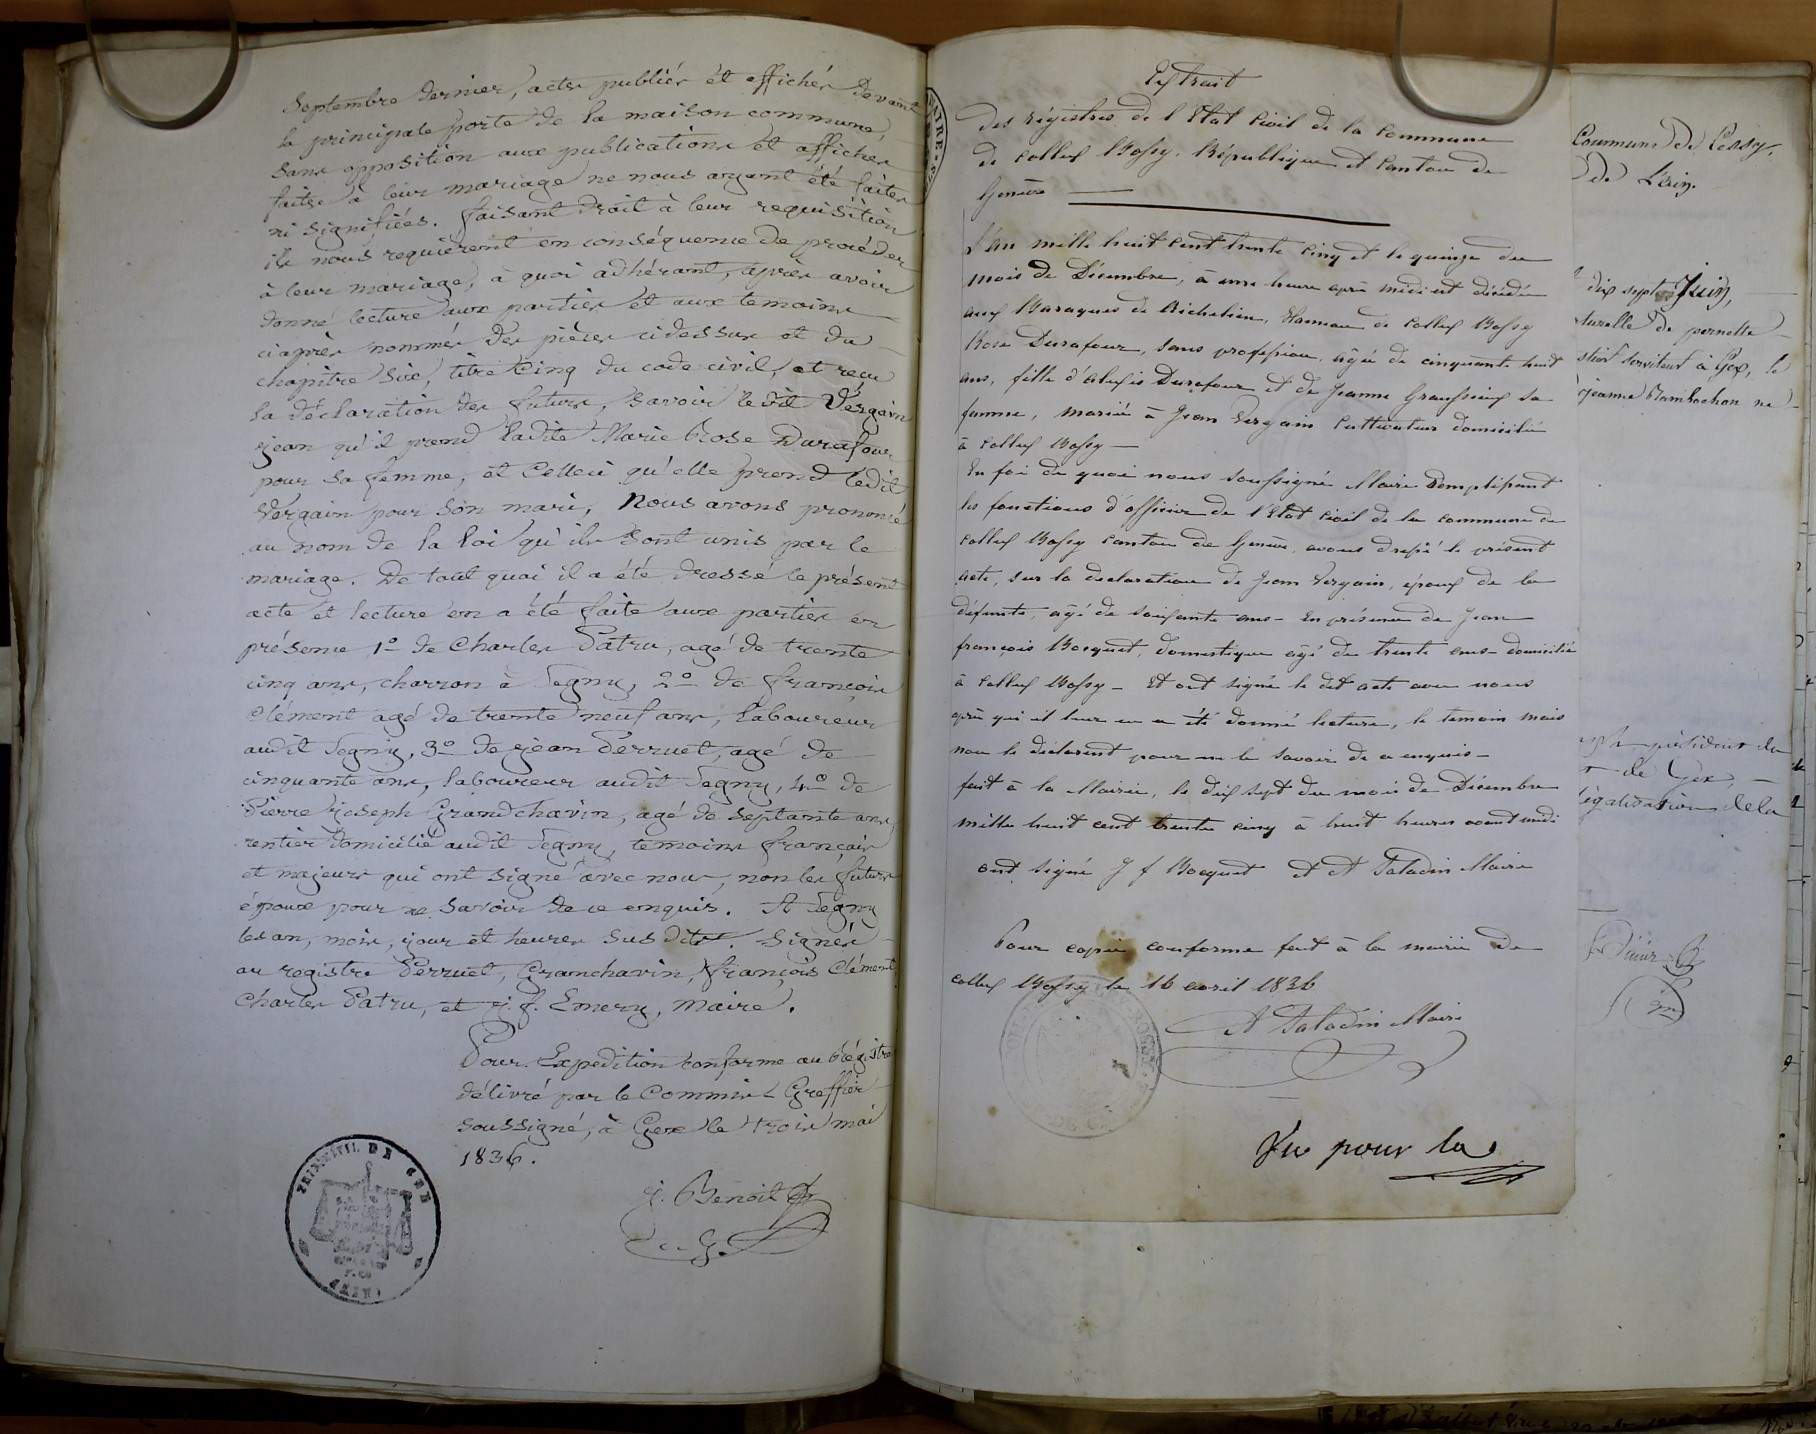 Septembre dernier, actes publiés et affichés devant
la principale porte de la maison commune,
sans opposition aux publications et affiches
faites à leur mariage ne nous ayant été faites
ni signifiées. faisant droit à leur requisition
ils nous requièrent en conséquence de procéder
à leur mariage, à quoi adhérant, après avoir
donné lecture aux parties et aux temoins
ciaprès nommés des pièces cidessus et du
chapitre six, titre Cinq du code civil, et reçu
la déclaration des futurs, savoir ledit Vergain
jean qu'il prend ladite Marie Rose Durafour
pour sa femme, et Celleci qu'elle prend ledit
Vergain pour son mari, Nous avons prononcé
au nom de la loi qu'ils sont unis par le
mariage. De tout quoi il a été dressé le présent
acte et lecture en a été faite aux parties en
présence 1º de Charles Patru, agé de trente
cinq ans, charron à Segny, 2º de François
Clément agé de trente neuf ans, laboureur
audit Segny, 3º de jean Perruet, agé de
cinquante ans, laboureur audit Segny, 4º de
Pierre joseph Grandchavin, agé de septante ans,
rentier domicilié audit Segny, témoins français
et majeurs qui ont signé avec nous, non les futurs
époux pour ne savoir de ce enquis. A Segny
les an, mois, jour et heures susdits. Signés
au registre Perruet, Granchavin, françois Clément
Charles Patru, et j. f. Emery, Maire.
Pour Expédition conforme au Régistre
délivré par le Commis Greffier
soussigné, à Gex le trois mai
1836.
j. Benoit
Extrait
des régistres de l'Etat Civil de la Commune
de Collex Bossy. République et Canton de
Genève
L'an mille huit cent trente cinq et le quinze du
mois de Décembre, à une heure après midi est décédée
aux Baraques de Richelieu, Hameau de Collex Bossy
Rose Durafour, sans profession, agée de cinquante huit
ans, fille d'Alexis Durafour et de Jeanne sa
femme, mariée à Jean Vergain Cultivateur domicilié
à Collex Bossy
En foi de quoi nous soussigné Maire Remplissant
les fonctions d'officier de l'Etat Civil de la commune de
Collex Bossy Canton de Genève, avons dressé le présent
acte, sur la declaration de Jean Vergain, époux de la
défunte, agé de soixante ans - En présence de Jean
françois Bocquet, domestique agé de trente ans domicilié
à Collex Bossy - Et ont signé le dit acte avec nous
après qu'il leur en a été donné lecture, le temoin mais
non le déclarant pour ne le savoir de ce enquis -
fait à la Mairie, le dix sept du mois de Décembre
mille huit cent trente cinq à huit heures avant midi
ont signé J f Bocquet et A Saladin Maire
Pour copie conforme fait à la mairie de
Collex Bossy le 16 avril 1836
A Saladin Maire
Vu pour la
Commune de Cessy,
de L'ain.
dix sept Juin,
turelle de pernette
serviteur à Gex, le
jeanne Rambochon
président du
de Gex,
légalisation de la